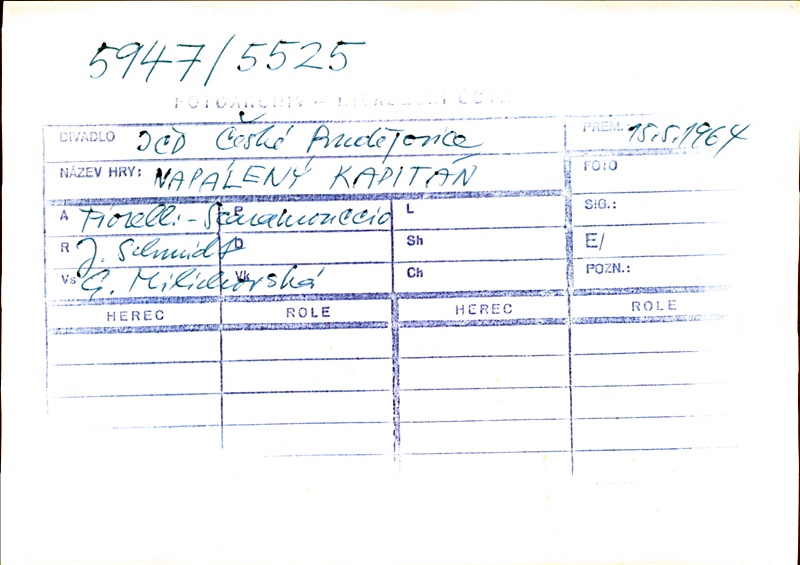 5947/5525
FOTOARCHIV – DIVADELNÍ ÚSTAV
DIVADLO JČD České Budějovice PREM.: 15.5.1964
NÁZEV HRY: NAPÁLENÝ KAPITÁN FOTO
A Fiorelli-Scaramouccio P L SIG.:
R J. Schmidt D Sh E/
Vs G. Milichovská Vk Ch POZN.:
HEREC ROLE HEREC ROLE